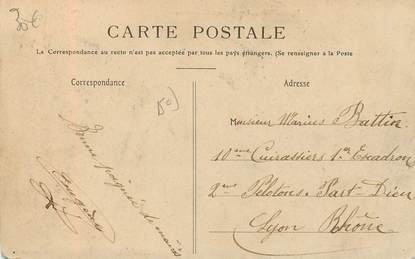 30€
CARTE POSTALE
La Correspondance au recto n'est pas acceptée par tous les pays étrangers. (Se renseigner à la Poste
Correspondance
Adresse
Bonne poignée de mains
Monsieur Marius Battin
10eme Cuirassiers 1er Escadron
2me Peloton. Part-Dieu
Lyon Rhône